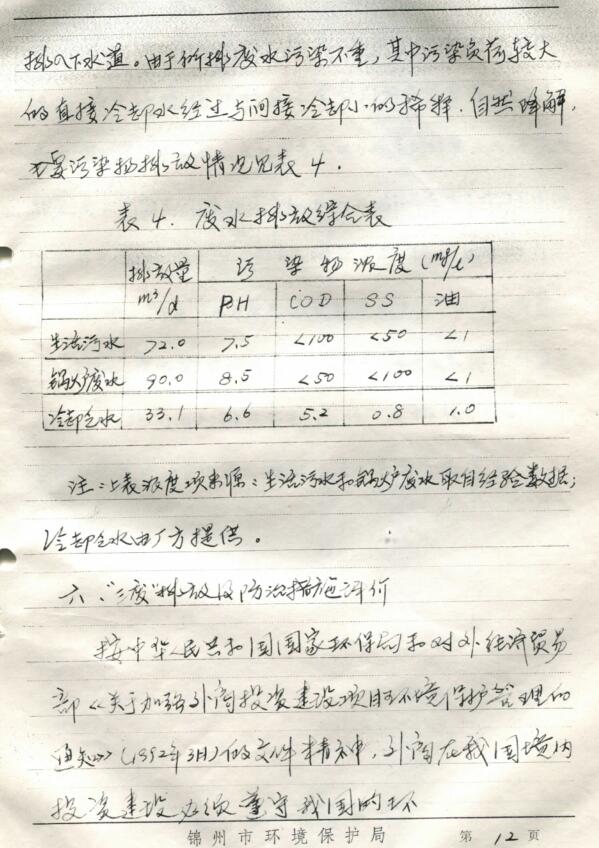 排入下水道。由于所排废水污染不重，其中污染负荷较大
的直接冷却水经过与间接冷却水的稀释.自然降解，
主要污染物排放情况见表4.
表4. 废水排放综合表
排放量 m³/d 污染物浓度(mg/l)
PH COD SS 油
生活污水 72.0 7.5 <100 <50 <1
锅炉废水 90.0 8.5 <50 <100 <1
冷却仑水 33.1 6.6 5.2 0.8 1.0
注：上表浓度项来源：生活污水和锅炉废水取自经验数据；
冷却仑水由厂方提供。
六、"三废"排放及防治措施评价
按中华人民共和国国家环保局和对外经济贸易
部《关于加强外商投资建设项目环境保护管理的
通知》(1992年3月)的文件精神，外商在我国境内
投资建设必须遵守我国的环
锦州市环境保护局 第 12 页